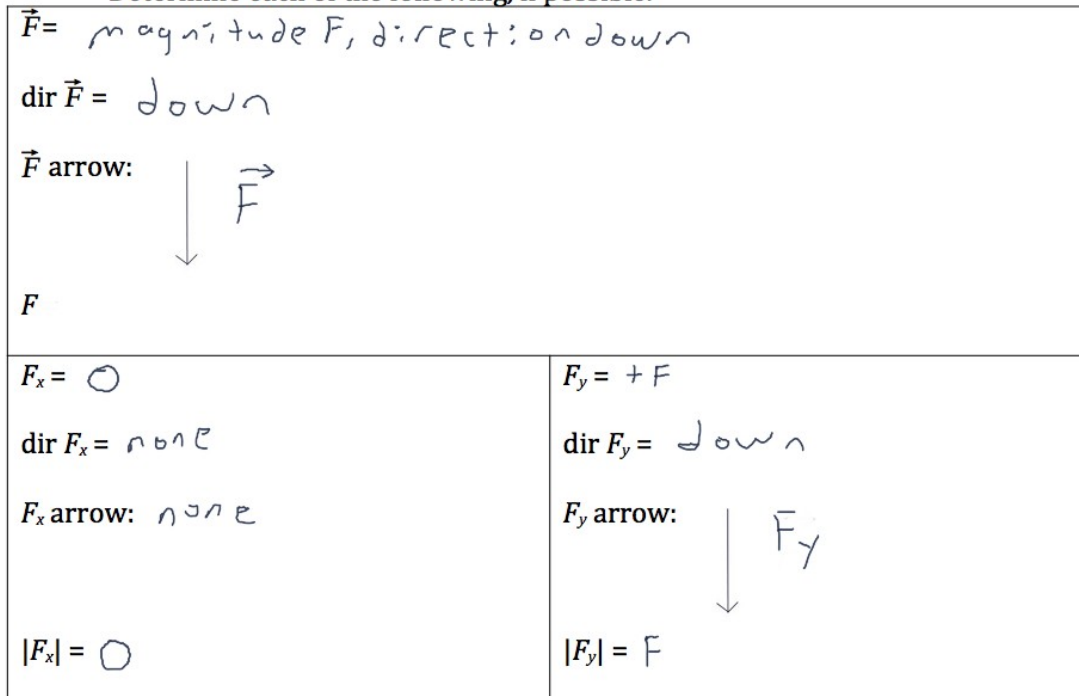 F⃗= magnitude F, direction down
dir F⃗ = down
F⃗ arrow:
F⃗
F
Fₓ = 0
dir Fₓ = none
Fₓ arrow: none
|Fₓ| = 0
Fᵧ = +F
dir Fᵧ = down
Fᵧ arrow:
Fᵧ
|Fᵧ| = F